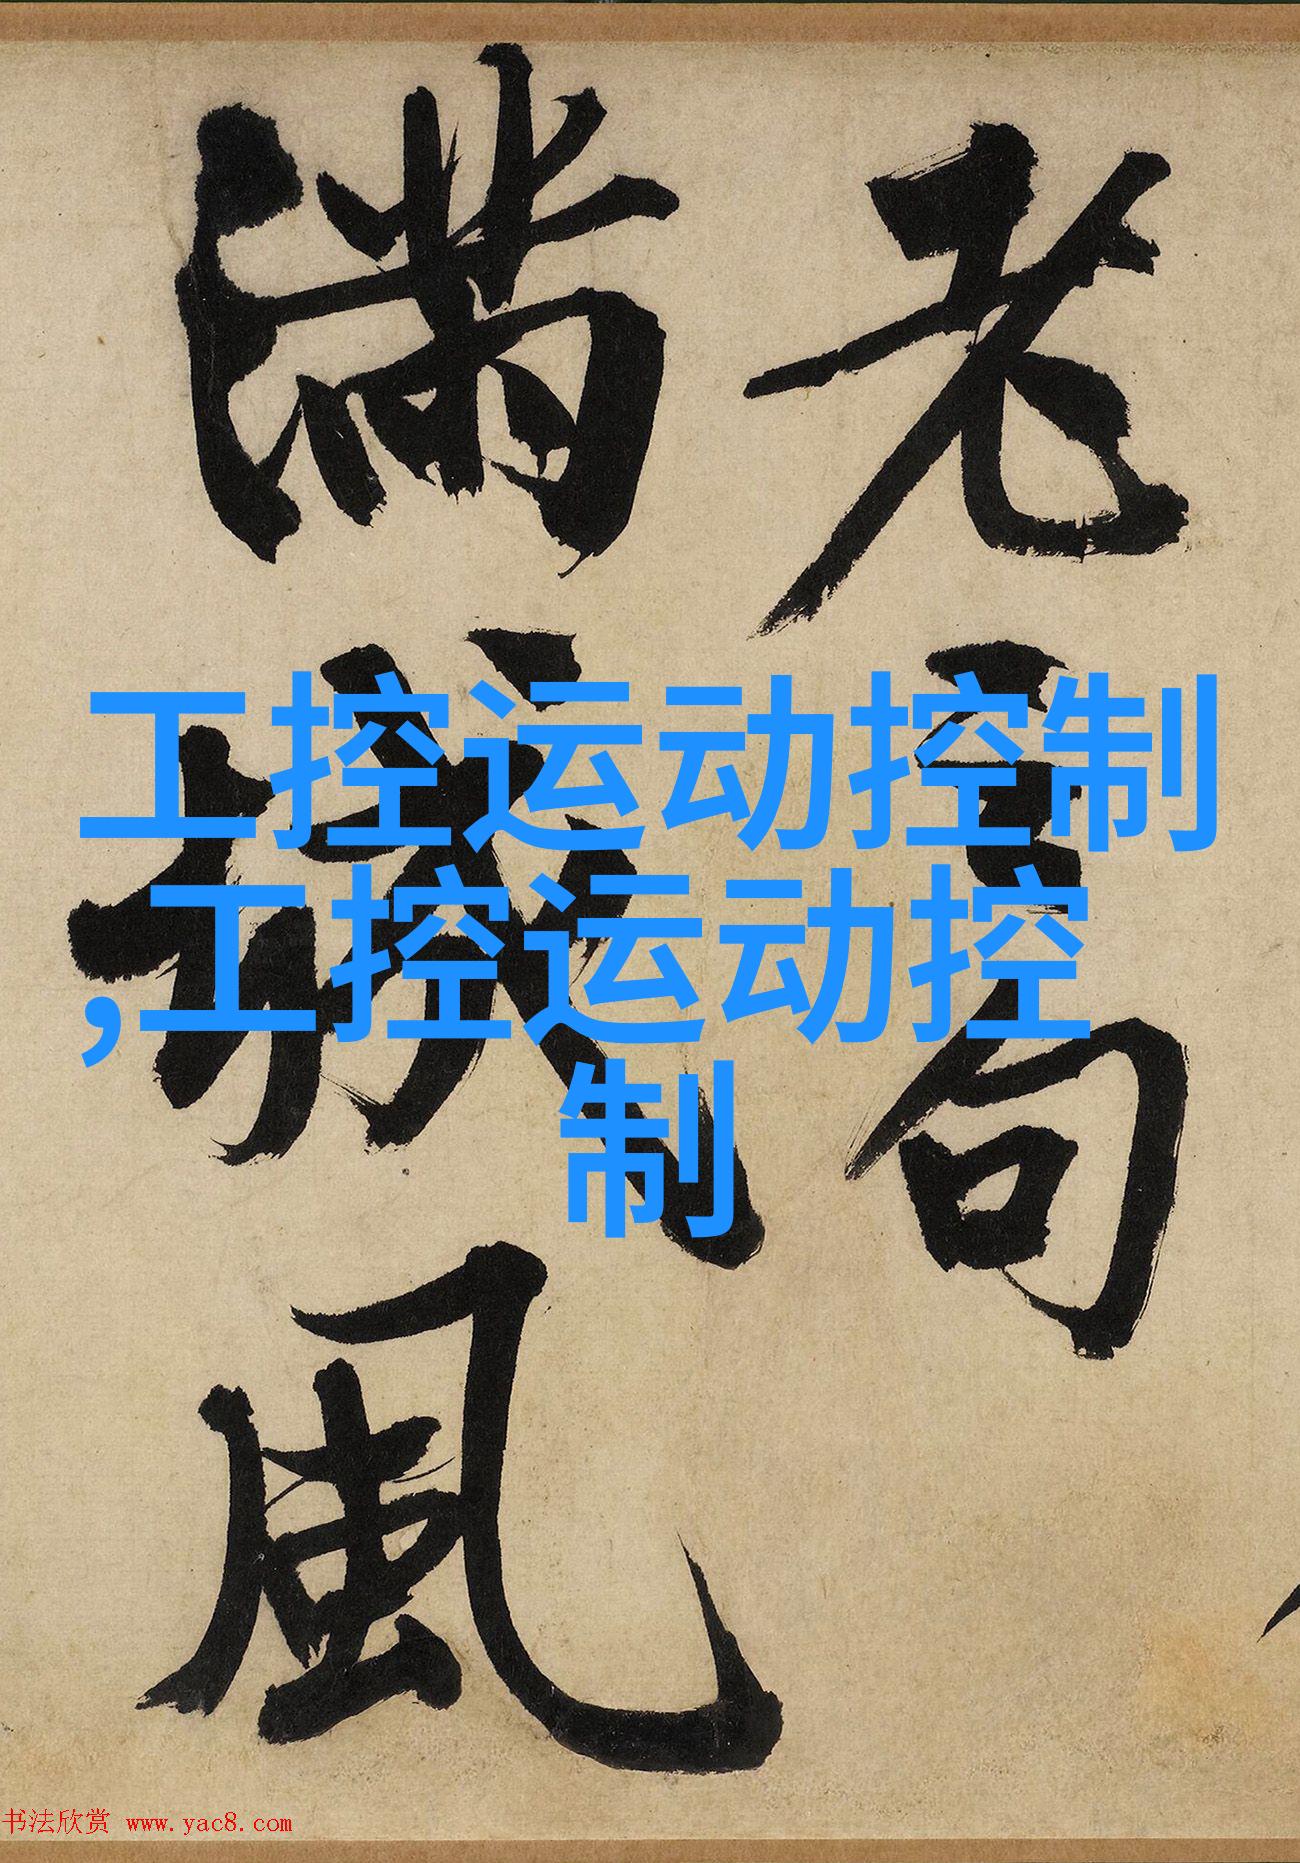 老言句
满城風
工控运动控制
,工控运动控
制
书法欣赏 www.yac8.com